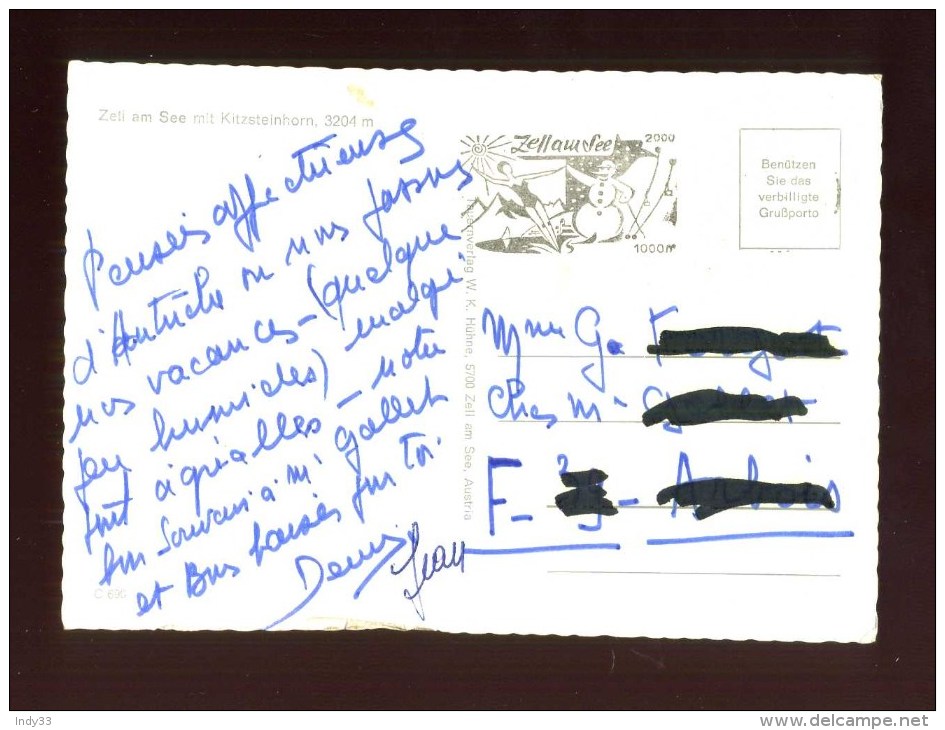 Zell am See mit Kitzsteinhorn, 3204 m
Pensées affectueuses
d'Autriche où nous passons
nos vacances - (quelque
peu humides) malgré
tout agréables - notre
bon souvenir à Mr Gallet
et Bons baisers pour toi
Denis Jean
C 696
Zell am See
2000
1000m
Tauernverlag W. K. Hühne, 5700 Zell am See, Austria
Benützen
Sie das
verbilligte
Grußporto
Mme Ga
Ches Mr
F-
Indy33
delcampe.net